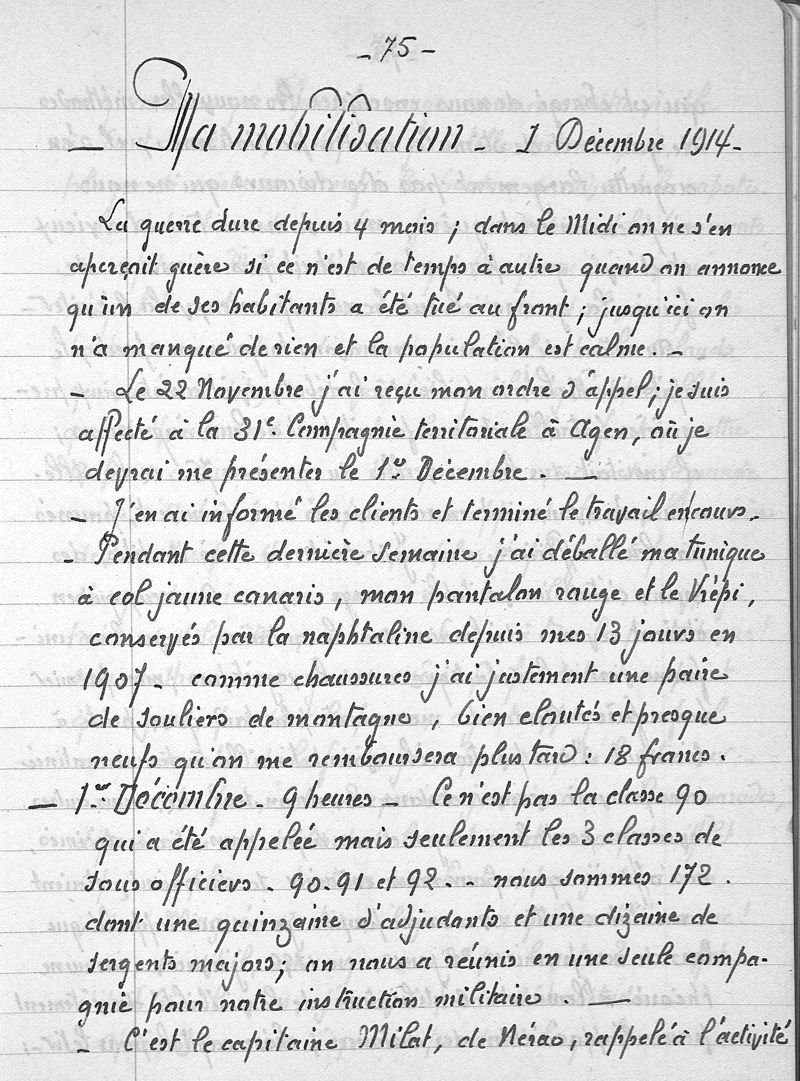 - 75 -
— Ma mobilisation - 1 Décembre 1914 -
La guerre dure depuis 4 mois ; dans le Midi on ne s'en
aperçoit guère si ce n'est de temps à autre quand on annonce
qu'un de ses habitants a été tué au front ; jusqu'ici on
n'a manqué de rien et la population est calme. -
- Le 22 Novembre j'ai reçu mon ordre d'appel ; je suis
affecté à la 31e. Compagnie territoriale à Agen, où je
devrai me présenter le 1er Décembre. —
- J'en ai informé les clients et terminé le travail en cours. -
- Pendant cette dernière semaine j'ai déballé ma tunique
à col jaune canari, mon pantalon rouge et le képi,
conservés par la naphtaline depuis mes 13 jours en
1907 - comme chaussures j'ai justement une paire
de souliers de montagne, bien cloutés et presque
neufs qu'on me remboursera plus tard : 18 francs.
— 1er Décembre - 9 heures - Ce n'est pas la classe 90
qui a été appelée mais seulement les 3 classes de
sous officiers - 90-91 et 92 - - nous sommes 172.
dont une quinzaine d'adjudants et une dizaine de
sergents majors ; on nous a réunis en une seule compa-
gnie pour notre instruction militaire. —
- C'est le capitaine Milat, de Nérac, rappelé à l'activité